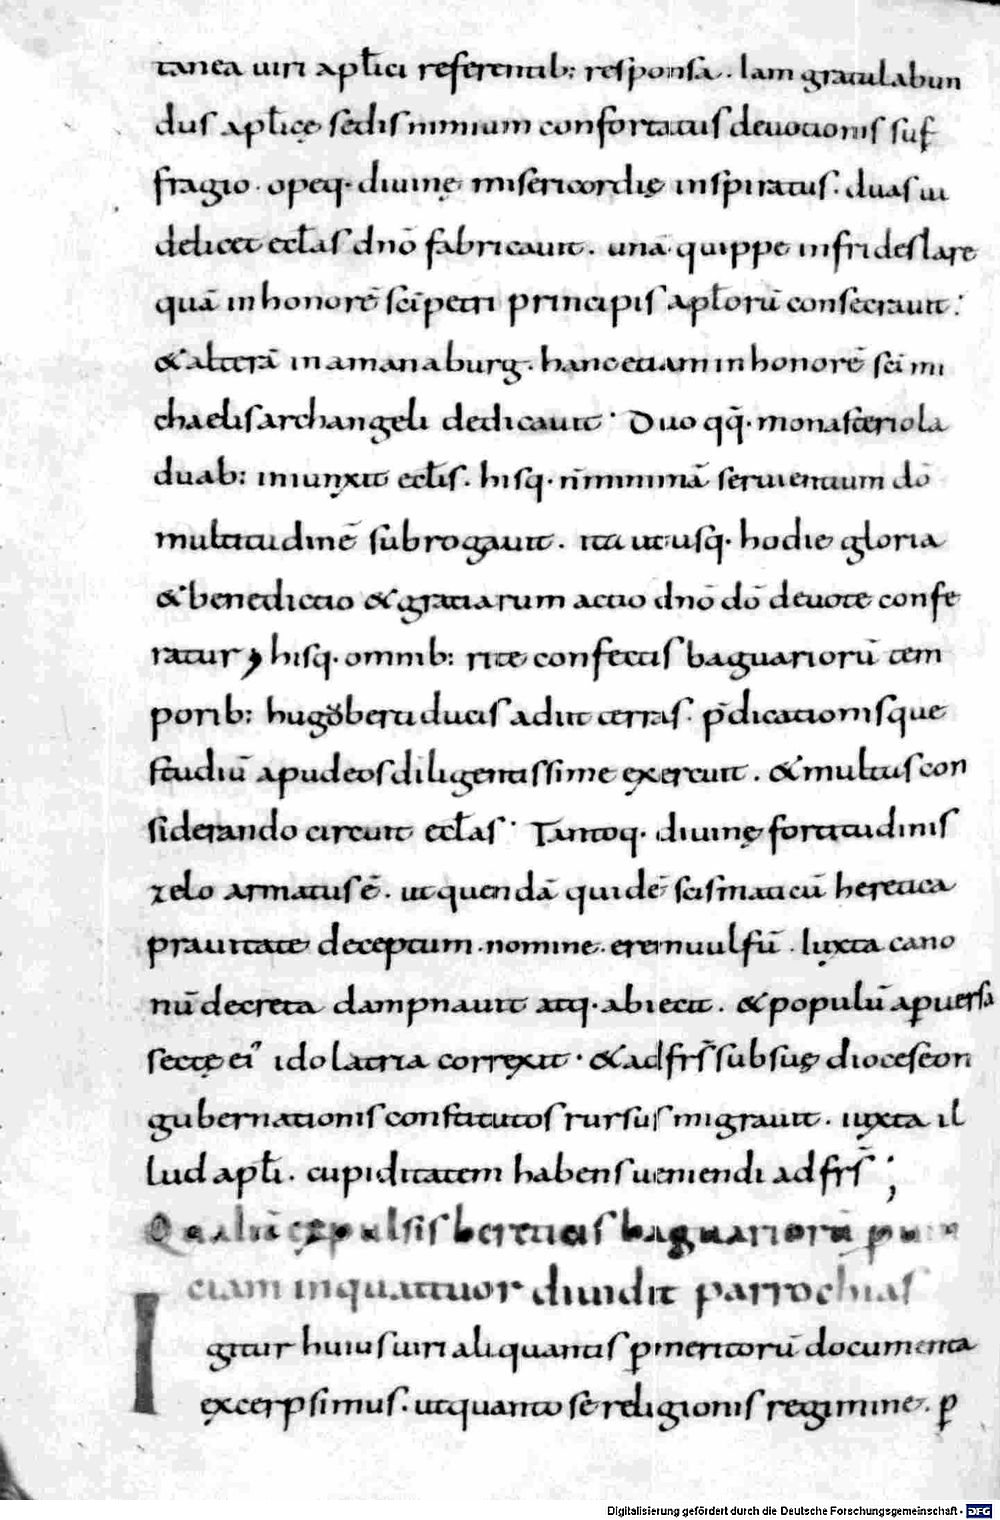 tanea uiri apłici referentib: responsa. Iam gratulabun
dus aplicę sedis nimium confortatus deuotionis suf
fragio. opeq· diuinę misericordię inspiratus. duas ui
delicet ecłas dnō fabricauit. unā quippe infrideslare
quā in honorē sc̄i petri principis apłorū consecrauit.
& alterā in amanaburg. hanc etiam in honorē sc̄i mi
chaelis archangeli dedicauit. Duo qq̄· monasteriola
duab: iniunxit ecłis. hisq· n̄ minimā seruientium dō
multitudinē subrogauit. ita ut usq· hodie gloria
& benedictio & gratiarum actio dnō dō deuote confe
ratur; hisq· omnib: rite confectis baguariorū tem
porib: hugoberti ducis adiit terras. p̄dicationisque
studiū apud eos diligentissime exercuit. & multas con
siderando circuit ecłas. Tantoq· diuinę fortitudinis
zelo armatus ē. ut quendā quidē scismaticū heretica
prauitate deceptum. nomine. eremuulfū. Iuxta cano
nū decreta dampnauit atq· abiecit. & populū a puersa
sectę ei' idolatria correxit. & ad frs̄ sub suę dioceseon
gubernationis constitutos rursus migrauit. iuxta il
lud apłi. cupiditatem habens ueniendi ad frs̄;
expulsis hereticis baguariorū
ciam in quattuor diuidit parrochias
Igitur huius uiri aliquantis p meritorū documenta
excerpsimus. ut quanto se religionis regimine. p